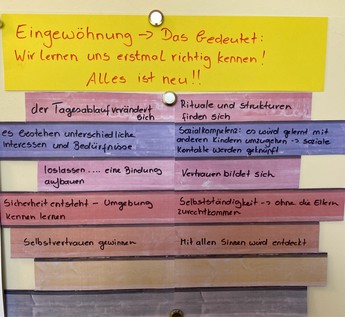 Eingewöhnung → Das bedeutet:
Wir lernen uns erstmal richtig kennen!
Alles ist neu!!
der Tagesablauf verändert
sich
Rituale und Strukturen
finden sich
es bestehen unterschiedliche
Interessen und Bedürfnisse
Sozialkompetenz: es wird gelernt mit
anderen Kindern umzugehen → soziale
Kontakte werden geknüpft
loslassen.... eine Bindung
aufbauen
Vertrauen bildet sich
Sicherheit entsteht - Umgebung
kennen lernen
Selbstständigkeit → ohne die Eltern
zurechtkommen
Selbstvertrauen gewinnen
Mit allen Sinnen wird entdeckt